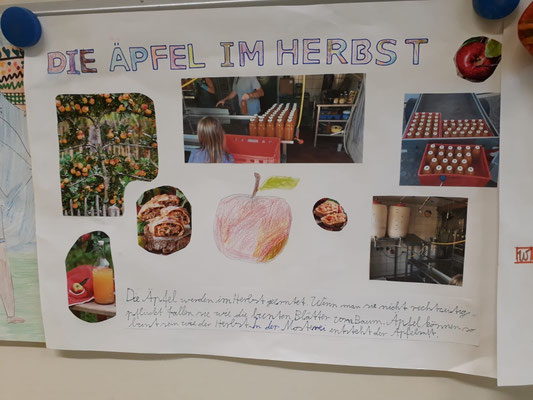 DIE ÄPFEL IM HERBST
Die Äpfel werden im Herbst geerntet. Wenn man sie nicht rechtzeitig
pflückt fallen sie wie die bunten Blätter vom Baum. Äpfel können so
bunt sein wie der Herbst. In der Mosterei entsteht der Apfelsaft.